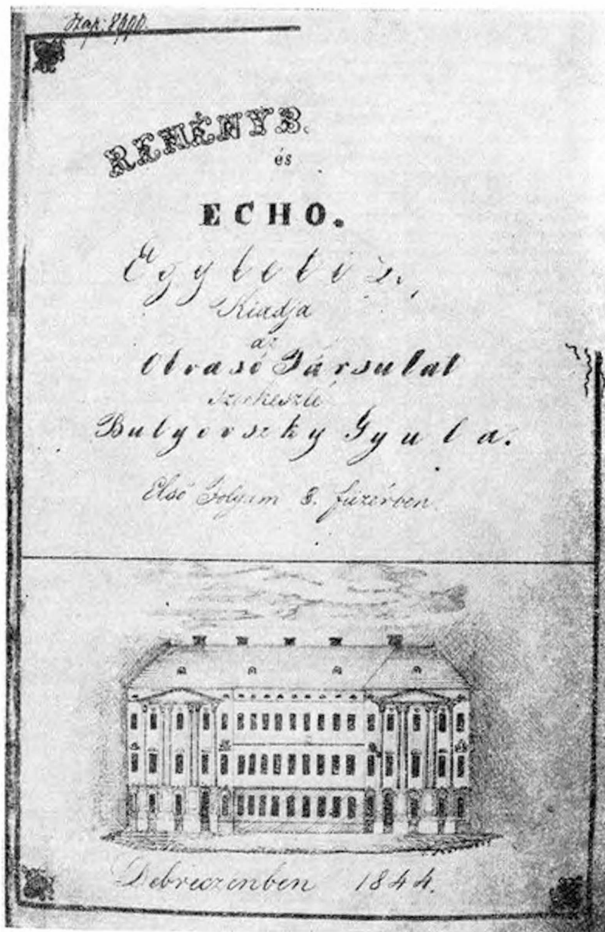 REMÉNYB.
és
ECHO.
Kiadja
az
Olvasó Társulat
szerkeszté
Bulyovszky Gyula.
Első Folyam 3. füzérben.
Debreczenben 1844.